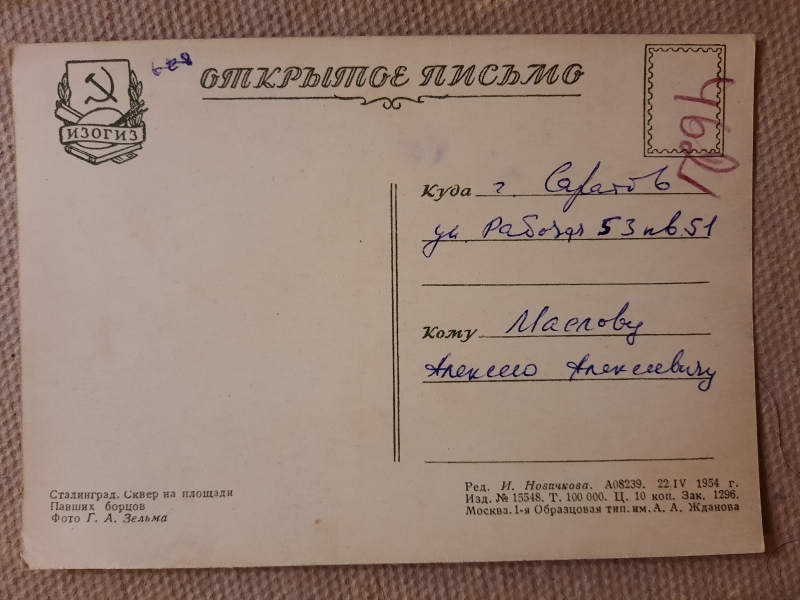 ОТКРЫТОЕ ПИСЬМО
ИЗОГИЗ
Куда г. Саратов
ул Рабочая 53 кв. 51
Кому Маслову
Алексею Алексеевичу
Сталинград. Сквер на площади
Павших борцов
Фото Г. А. Зельма
Ред. И. Новичкова. А08239. 22 IV 1954 г.
Изд. № 15548. Т. 100 000. Ц. 10 коп. Зак. 1296.
Москва. 1-я Образцовая тип. им. А. А. Жданова